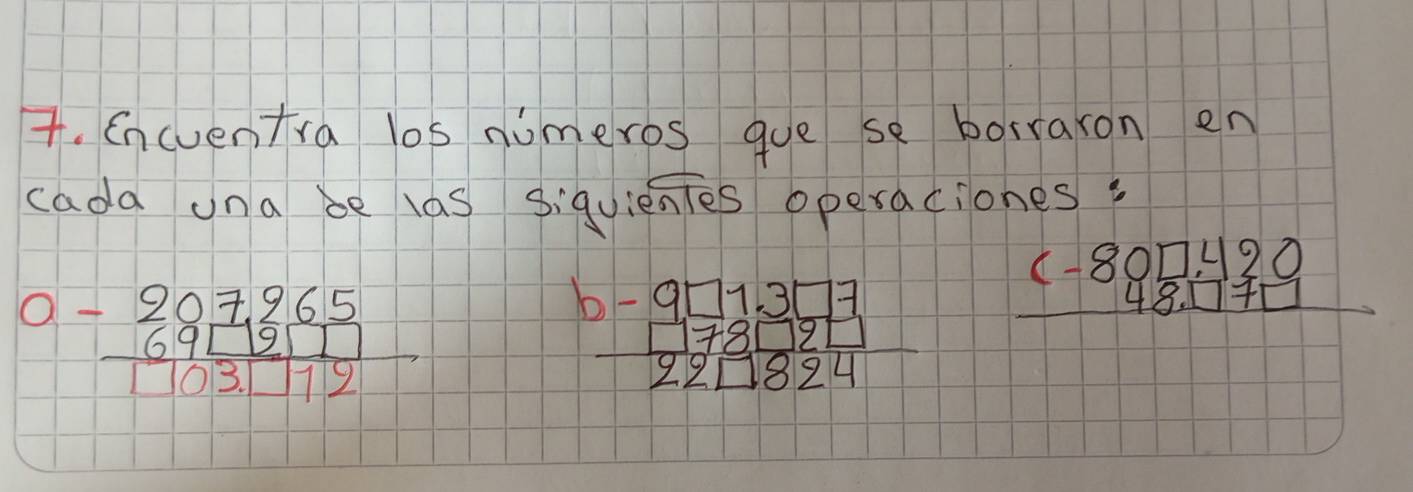 7. Encuentra los números que se borraron en
cada una de las siguientes operaciones:
a - 207.265
69□2□□
□03.□12
b - 9□1.3□7
□78□2□
22□824
c - 80□.420
48.□7□